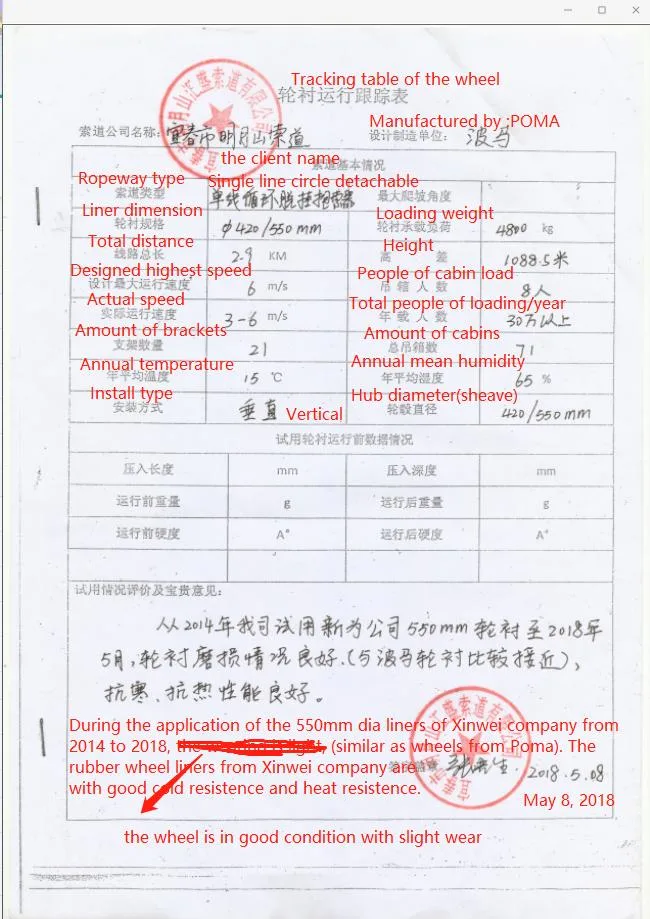 Tracking table of the wheel
轮衬运行跟踪表
Manufactured by :POMA
索道公司名称: 宜春市明月山索道 设计制造单位: 波马
the client name
索道基本情况
Ropeway type Single line circle detachable
索道类型 单线循环脱挂抱索器 最大爬坡角度
Liner dimension Loading weight
轮衬规格 φ420/550mm 轮衬承载负荷 4800 kg
Total distance Height
线路总长 2.9 KM 高 差 1088.5米
Designed highest speed People of cabin load
设计最大运行速度 6 m/s 吊箱人数 8人
Actual speed Total people of loading/year
实际运行速度 3-6 m/s 年载人数 30万以上
Amount of brackets Amount of cabins
支架数量 21 总吊箱数 71
Annual temperature Annual mean humidity
年平均温度 15 ℃ 年平均湿度 65 %
Install type Hub diameter(sheave)
安装方式 垂直 Vertical 轮毂直径 420/550mm
试用轮衬运行前数据情况
压入长度 mm 压入深度 mm
运行前重量 g 运行后重量 g
运行前硬度 A° 运行后硬度 A°
试用情况评价及宝贵意见:
从2014年我司试用新为公司550mm轮衬至2018年
5月,轮衬磨损情况良好.(与波马轮衬比较接近),
抗寒、抗热性能良好。
During the application of the 550mm dia liners of Xinwei company from
2014 to 2018, (similar as wheels from Poma). The
rubber wheel liners from Xinwei company are
with good cold resistence and heat resistence.
2018.5.08
May 8, 2018
the wheel is in good condition with slight wear